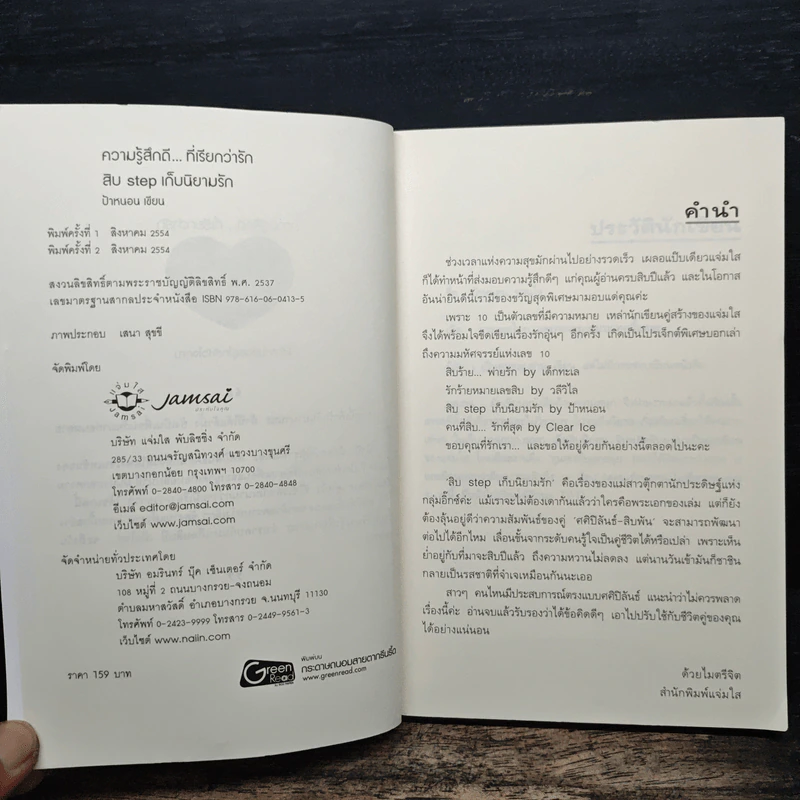 ความรู้สึกดี... ที่เรียกว่ารัก
สิบ step เก็บนิยามรัก
ป้าหนอน เขียน
พิมพ์ครั้งที่ 1 สิงหาคม 2554
พิมพ์ครั้งที่ 2 สิงหาคม 2554
สงวนลิขสิทธิ์ตามพระราชบัญญัติลิขสิทธิ์ พ.ศ. 2537
เลขมาตรฐานสากลประจำหนังสือ ISBN 978-616-06-0413-5
ภาพประกอบ เสนา สุขขี
จัดพิมพ์โดย
แจ่มใส
Jamsai
jamsai
บริษัท แจ่มใส พับลิชชิ่ง จำกัด
285/33 ถนนจรัญสนิทวงศ์ แขวงบางขุนศรี
เขตบางกอกน้อย กรุงเทพฯ 10700
โทรศัพท์ 0-2840-4800 โทรสาร 0-2840-4848
อีเมล์ editor@jamsai.com
เว็บไซต์ www.jamsai.com
จัดจำหน่ายทั่วประเทศโดย
บริษัท อมรินทร์ บุ๊ค เซ็นเตอร์ จำกัด
108 หมู่ที่ 2 ถนนบางกรวย-จงถนอม
ตำบลมหาสวัสดิ์ อำเภอบางกรวย จ.นนทบุรี 11130
โทรศัพท์ 0-2423-9999 โทรสาร 0-2449-9561-3
เว็บไซต์ www.naiin.com
ราคา 159 บาท
Green Read
พิมพ์บน
กระดาษถนอมสายตากรีนรี้ด
www.greenread.com
คำนำ
ช่วงเวลาแห่งความสุขมักผ่านไปอย่างรวดเร็ว เผลอแป๊บเดียวแจ่มใส
ก็ได้ทำหน้าที่ส่งมอบความรู้สึกดีๆ แก่คุณผู้อ่านครบสิบปีแล้ว และในโอกาส
อันน่ายินดีนี้เรามีของขวัญสุดพิเศษมามอบแด่คุณค่ะ
เพราะ 10 เป็นตัวเลขที่มีความหมาย เหล่านักเขียนคู่สร้างของแจ่มใส
จึงได้พร้อมใจขีดเขียนเรื่องรักอุ่นๆ อีกครั้ง เกิดเป็นโปรเจ็กต์พิเศษบอกเล่า
ถึงความมหัศจรรย์แห่งเลข 10
สิบร้าย... พ่ายรัก by เด็กทะเล
รักร้ายหมายเลขสิบ by วลีวิไล
สิบ step เก็บนิยามรัก by ป้าหนอน
คนที่สิบ... รักที่สุด by Clear Ice
ขอบคุณที่รักเรา... และขอให้อยู่ด้วยกันอย่างนี้ตลอดไปนะคะ
'สิบ step เก็บนิยามรัก' คือเรื่องของแม่สาวตุ๊กตานักประดิษฐ์แห่ง
กลุ่มอิ๊กซ์ค่ะ แม้เราจะไม่ต้องเดากันแล้วว่าใครคือพระเอกของเล่ม แต่ก็ยัง
ต้องลุ้นอยู่ดีว่าความสัมพันธ์ของคู่ 'ศศิปิลันธ์-สิบพัน' จะสามารถพัฒนา
ต่อไปได้อีกไหม เลื่อนขั้นจากระดับคนรู้ใจเป็นคู่ชีวิตได้หรือเปล่า เพราะเห็น
ย่ำอยู่กับที่มาจะสิบปีแล้ว ถึงความหวานไม่ลดลง แต่นานวันเข้ามันก็ชาชิน
กลายเป็นรสชาติที่จำเจเหมือนกันนะเออ
สาวๆ คนไหนมีประสบการณ์ตรงแบบศศิปิลันธ์ แนะนำว่าไม่ควรพลาด
เรื่องนี้ค่ะ อ่านจบแล้วรับรองว่าได้ข้อคิดดีๆ เอาไปปรับใช้กับชีวิตคู่ของคุณ
ได้อย่างแน่นอน
ด้วยไมตรีจิต
สำนักพิมพ์แจ่มใส